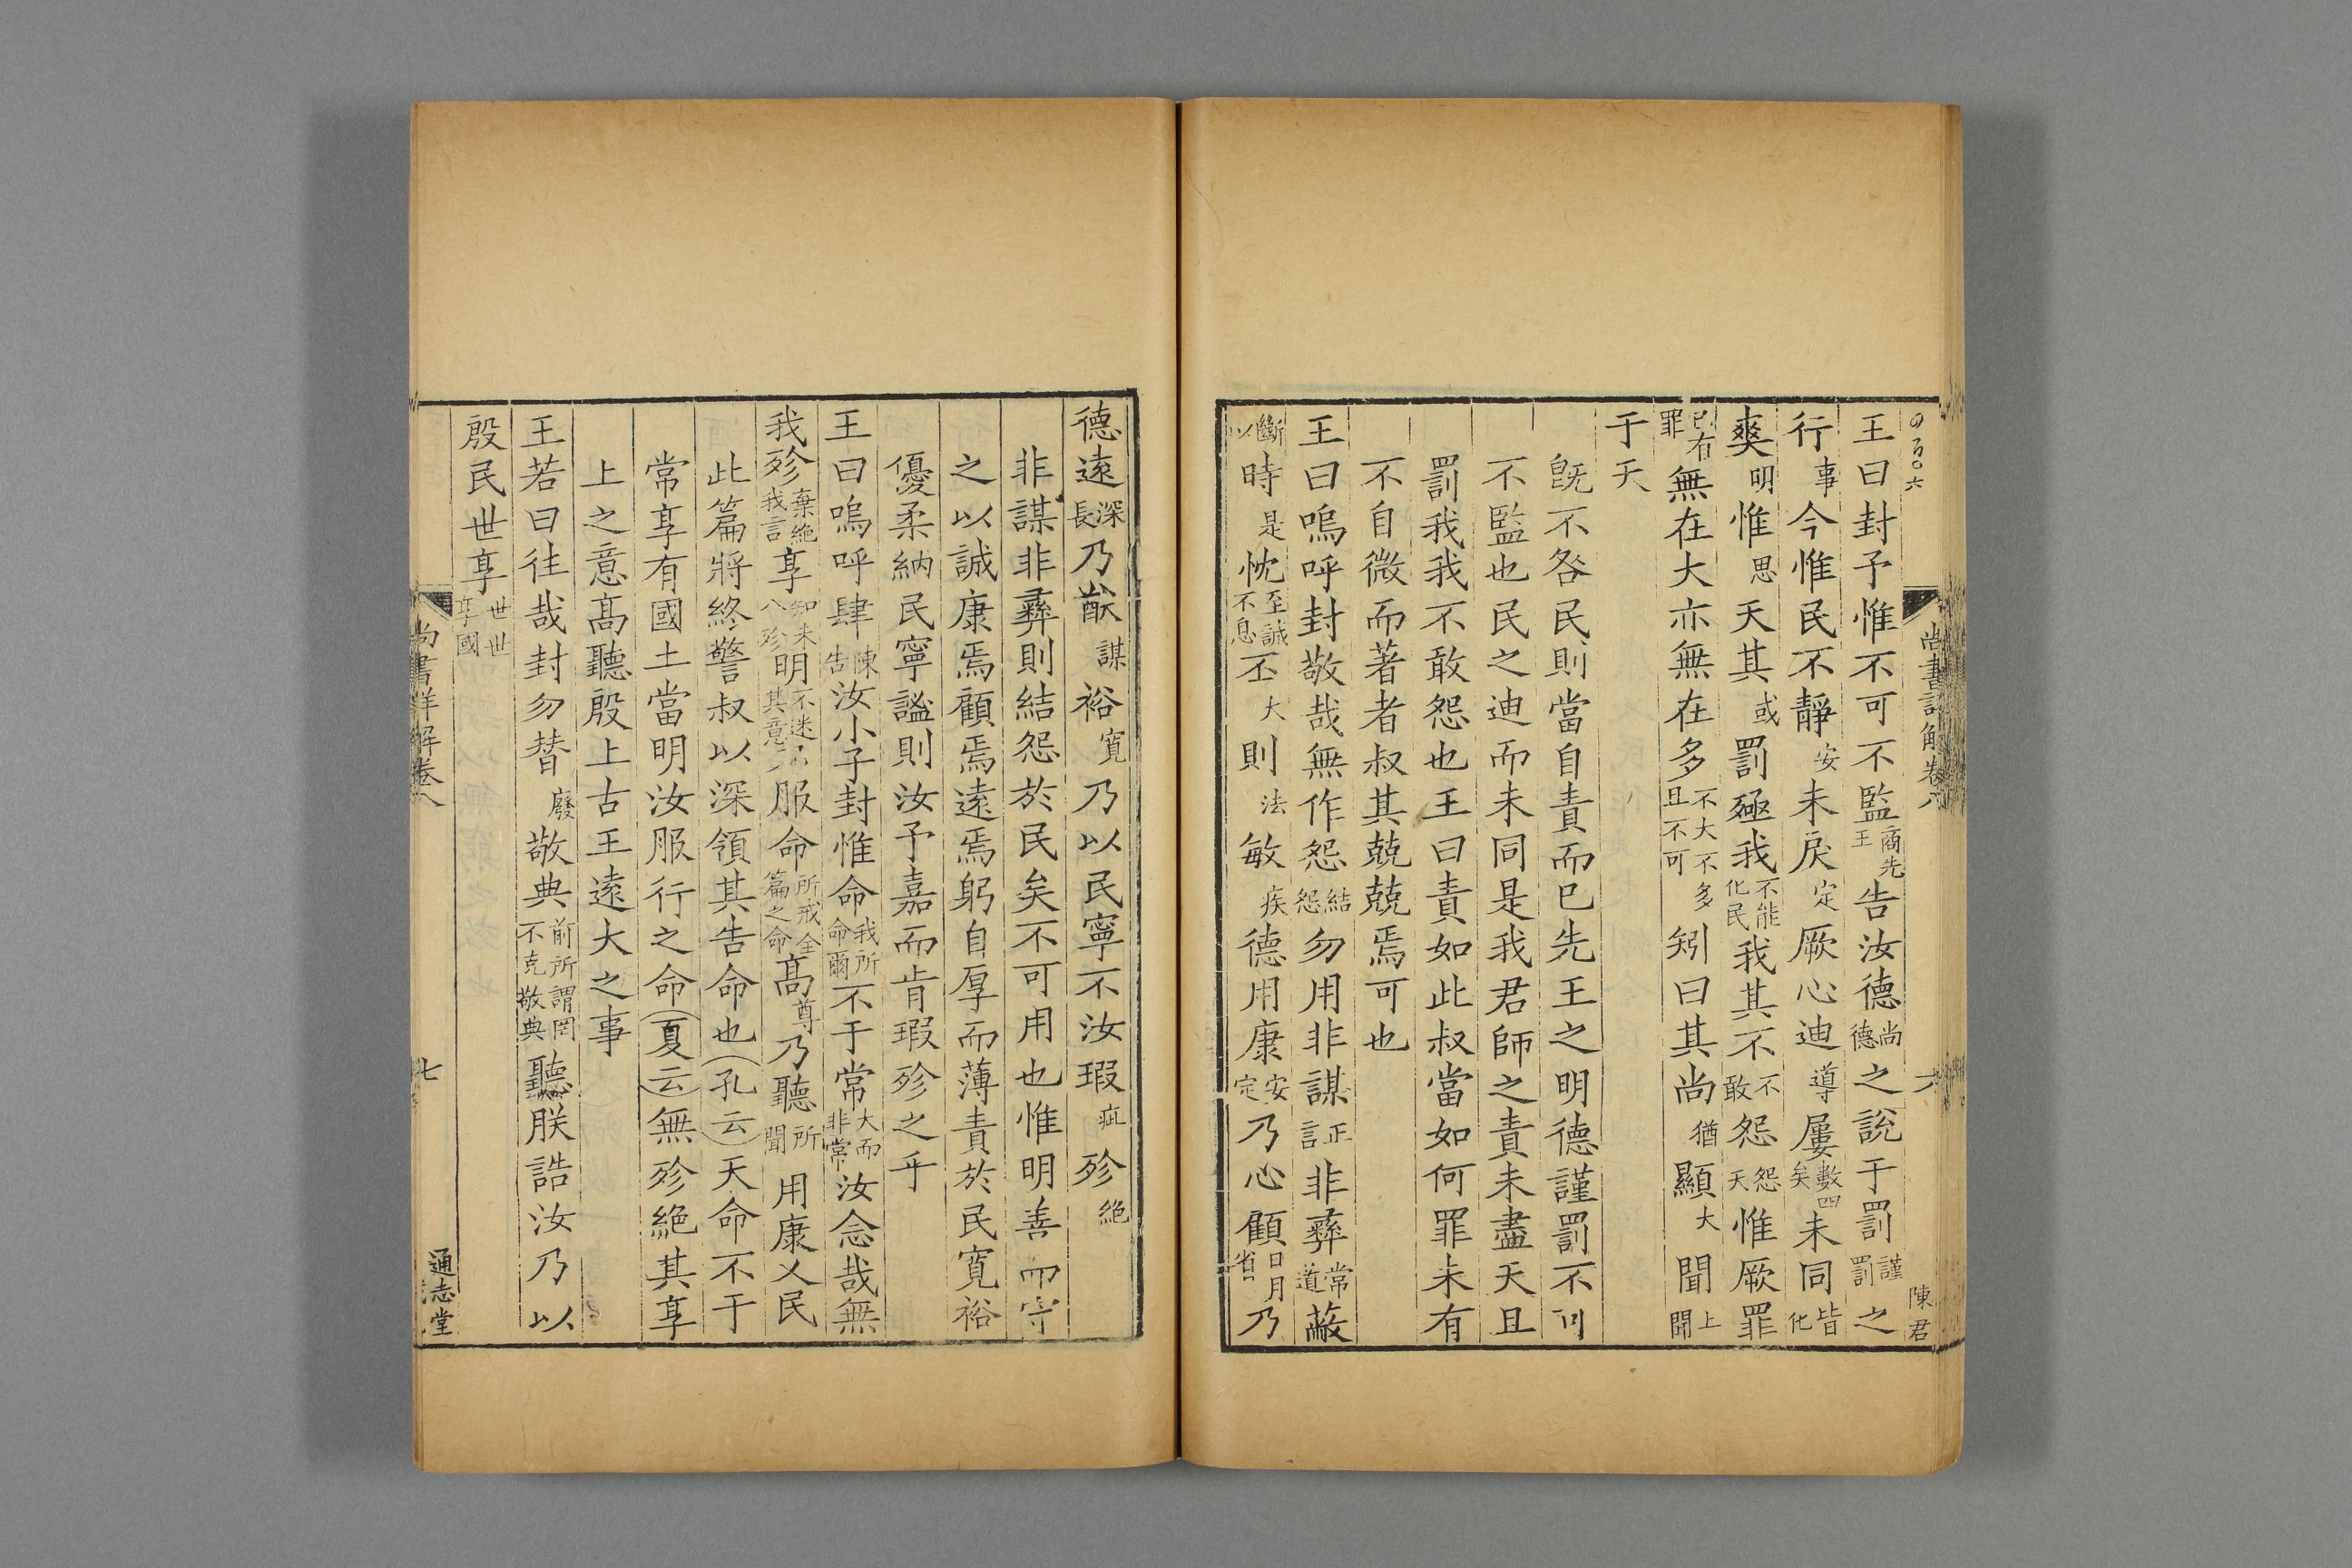 尚書詳解卷八
六
陳君
王曰封予惟不可不監商先王告汝德尚德之說于罰謹罰之
行事今惟民不靜安未戾定厥心迪導屢數四矣未同皆化
爽明惟思天其或罰殛我不能化民我其不敢不怨怨天惟厥罪
已有罪無在大亦無在多不大不多且不可矧曰其尚猶顯大聞上聞
于天
旣不咎民則當自責而已先王之明德謹罰不可
不監也民之迪而未同是我君師之責未盡天且
罰我我不敢怨也王曰責如此叔當如何罪未有
不自微而著者叔其兢兢焉可也
王曰嗚呼封敬哉無作怨結怨勿用非謀正言非彞常道蔽
斷以時是忱至誠不息丕大則法敏疾德用康安定乃心顧日月省乃
德遠深長乃猷謀裕寬乃以民寧不汝瑕疵殄絕
非謀非彞則結怨於民矣不可用也惟明善而守
之以誠康焉顧焉遠焉躬自厚而薄責於民寬裕
優柔納民寧謐則汝予嘉而肯瑕殄之乎
王曰嗚呼肆陳告汝小子封惟命我所命爾不于常大而非常汝念哉無
我殄棄絕我言享明不迷其意乃服命所戒全篇之命高尊乃聽所聞用康乂民
此篇將終警叔以深領其告命也孔云天命不于
常享有國土當明汝服行之命夏云無殄絕其享
上之意高聽殷上古王遠大之事
王若曰往哉封勿替廢敬典前所謂罔不克敬典聽朕誥汝乃以
殷民世享世世享國
尚書詳解卷八
七
通志堂